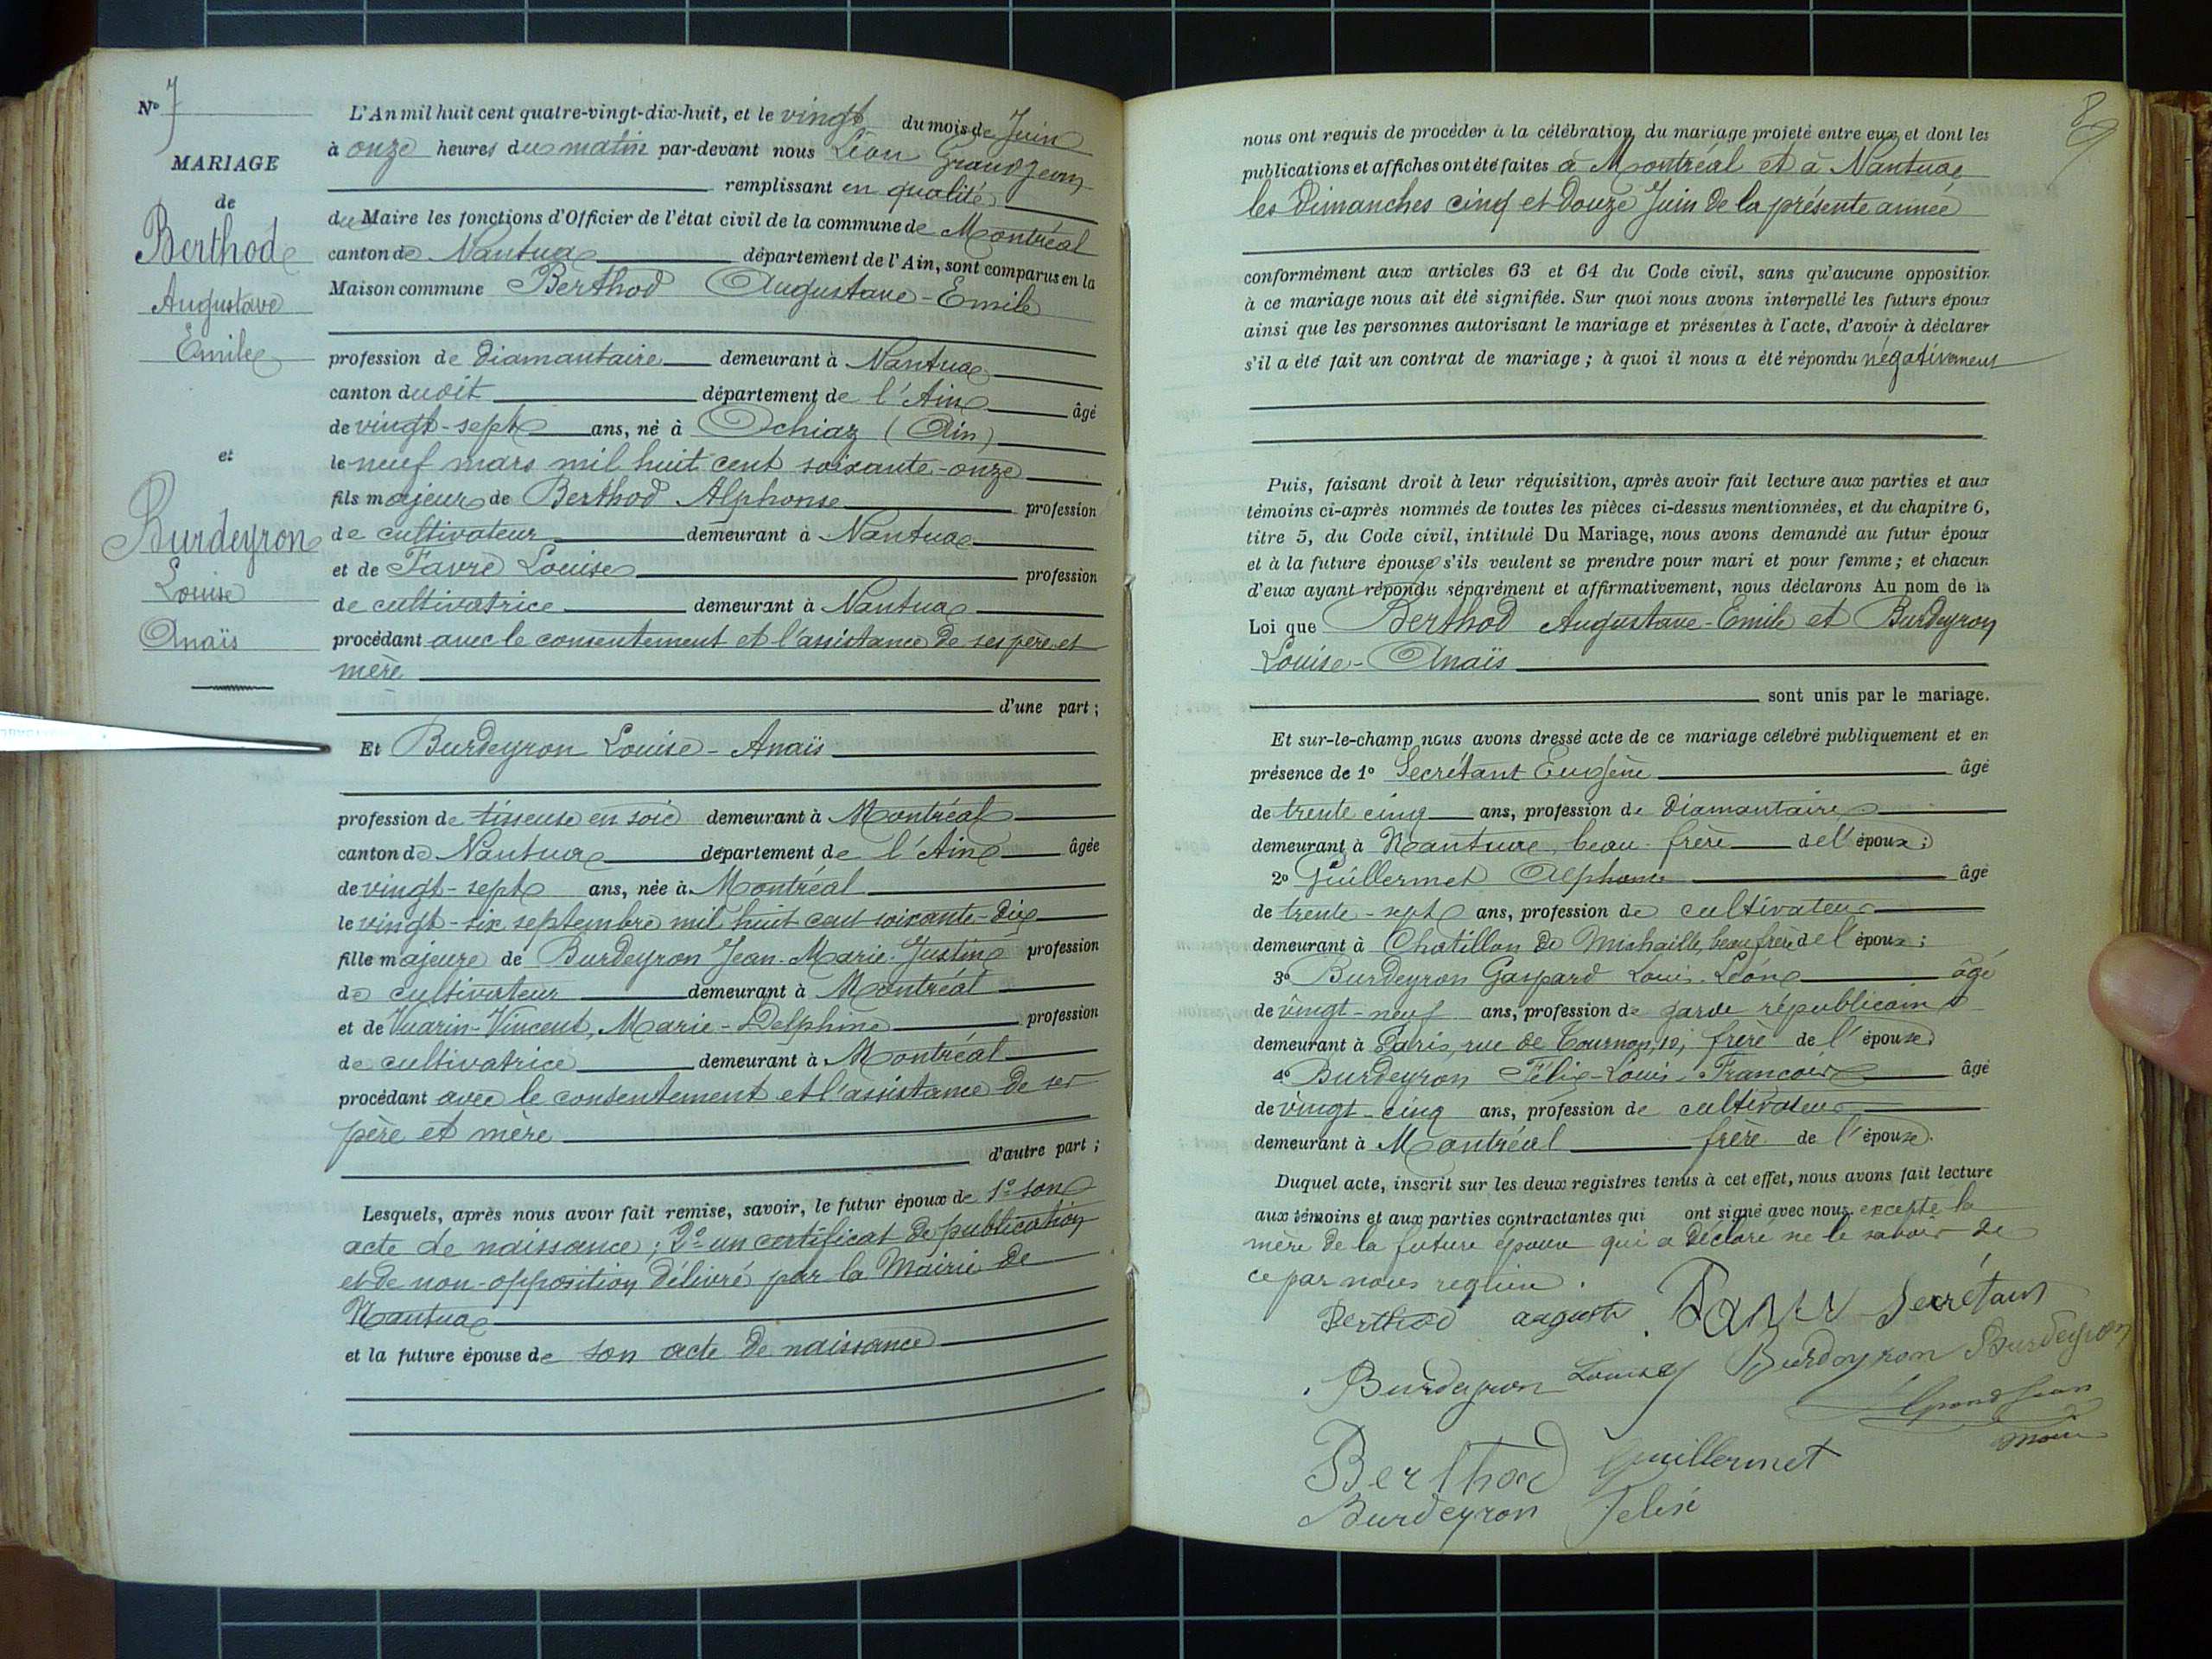 N° 7
MARIAGE
de
Berthod
Augustave
Emile
et
Burdeyron
Louise
Anaïs
L'An mil huit cent quatre-vingt-dix-huit, et le vingt du mois de Juin
à onze heures du matin par-devant nous Léon Grandjean
remplissant en qualité
de Maire les fonctions d'Officier de l'état civil de la commune de Montréal
canton de Nantua département de l'Ain, sont comparus en la
Maison commune Berthod Augustave-Emile
profession de diamantaire demeurant à Nantua
canton dudit département de l'Ain âgé
de vingt-sept ans, né à Ochiaz (Ain)
le neuf mars mil huit cent soixante-onze
fils majeur de Berthod Alphonse profession
de cultivateur demeurant à Nantua
et de Favre Louise profession
de cultivatrice demeurant à Nantua
procédant avec le consentement et l'assistance de ses père et
mère
d'une part ;
Et Burdeyron Louise-Anaïs
profession de tisseuse en soie demeurant à Montréal
canton de Nantua département de l'Ain âgée
de vingt-sept ans, née à Montréal
le vingt-six septembre mil huit cent soixante-dix
fille majeure de Burdeyron Jean-Marie-Justin profession
de cultivateur demeurant à Montréal
et de Vuarin-Vincent, Marie-Delphine profession
de cultivatrice demeurant à Montréal
procédant avec le consentement et l'assistance de ses
père et mère
d'autre part ;
Lesquels, après nous avoir fait remise, savoir, le futur époux de 1° son
acte de naissance ; 2° un certificat de publication
et de non-opposition délivré par la Mairie de
Nantua
et la future épouse de son acte de naissance
89
nous ont requis de procéder à la célébration du mariage projeté entre eux et dont les
publications et affiches ont été faites à Montréal et à Nantua
les Dimanches cinq et Douze Juin de la présente année
conformément aux articles 63 et 64 du Code civil, sans qu'aucune opposition
à ce mariage nous ait été signifiée. Sur quoi nous avons interpellé les futurs époux
ainsi que les personnes autorisant le mariage et présentes à l'acte, d'avoir à déclarer
s'il a été fait un contrat de mariage ; à quoi il nous a été répondu négativement
Puis, faisant droit à leur réquisition, après avoir fait lecture aux parties et aux
témoins ci-après nommés de toutes les pièces ci-dessus mentionnées, et du chapitre 6,
titre 5, du Code civil, intitulé Du Mariage, nous avons demandé au futur époux
et à la future épouse s'ils veulent se prendre pour mari et pour femme ; et chacun
d'eux ayant répondu séparément et affirmativement, nous déclarons Au nom de la
Loi que Berthod Augustave-Emile et Burdeyron
Louise-Anaïs
sont unis par le mariage.
Et sur-le-champ nous avons dressé acte de ce mariage célébré publiquement et en
présence de 1° Secrétant Eugène âgé
de trente cinq ans, profession de diamantaire
demeurant à Nantua, beau-frère de l'époux ;
2° Guillermet Alphonse âgé
de trente-sept ans, profession de cultivateur
demeurant à Chatillon de Michaille, beau frère de l'époux ;
3° Burdeyron Gaspard Louis-Léon âgé
de vingt-neuf ans, profession de garde républicain
demeurant à Paris, rue de Tournon, 10, frère de l'épouse
4° Burdeyron Félix-Louis-François âgé
de vingt-cinq ans, profession de cultivateur
demeurant à Montréal frère de l'épouse.
Duquel acte, inscrit sur les deux registres tenus à cet effet, nous avons fait lecture
aux témoins et aux parties contractantes qui ont signé avec nous excepté la
mère de la future épouse qui a déclaré ne le savoir de
ce par nous requise.
Berthod auguste Secrétant
Burdeyron Louise Burdeyron Burdeyron
Grandjean
Maire
Berthod Guillermet
Burdeyron Felix